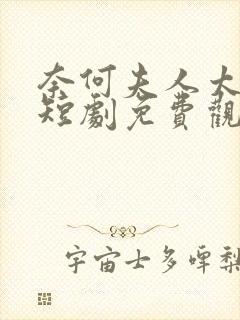 奈何夫人太
短劇免費觀
宇宙士多啤梨